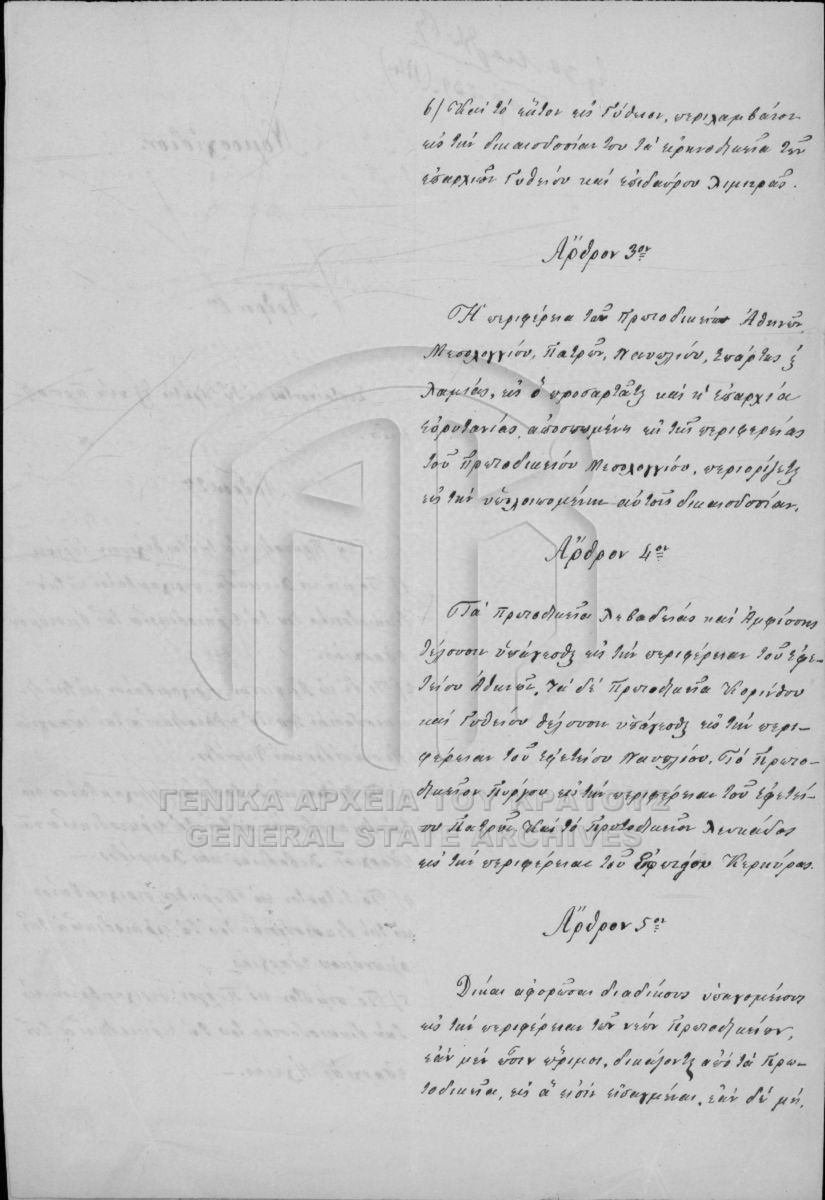 6/ Καὶ τὸ ἕκτον εἰς Γύθειον, περιλαμβάνον
εἰς τὴν δικαιοδοσίαν του τὰ εἰρηνοδικεῖα τῶν
ἐπαρχιῶν Γυθείου καὶ Ἐπιδαύρου Λιμηρᾶς.
Ἄρθρον 3ον
Ἡ περιφέρεια τῶν Πρωτοδικείων Ἀθηνῶν,
Μεσολογγίου, Πατρῶν, Ναυπλίου, Σπάρτης &
Λαμίας, εἰς ὃ προσαρτᾶται καὶ ἡ ἐπαρχία
Εὐρυτανίας, ἀποσπωμένη ἐκ τῆς περιφερείας
τοῦ Πρωτοδικείου Μεσολογγίου, περιορίζεται
εἰς τὴν ὑπολοιπομένην αὐτοῖς δικαιοδοσίαν.
Ἄρθρον 4ον
Τὰ Πρωτοδικεῖα Λεβαδείας καὶ Ἀμφίσσης
θέλουσιν ὑπάγεσθαι εἰς τὴν περιφέρειαν τοῦ Ἐφε-
τείου Ἀθηνῶν, τὰ δὲ Πρωτοδικεῖα Κορίνθου
καὶ Γυθείου θέλουσιν ὑπάγεσθαι εἰς τὴν περι-
φέρειαν τοῦ Ἐφετείου Ναυπλίου. Τὸ Πρωτο-
δικεῖον Πύργου εἰς τὴν περιφέρειαν τοῦ Ἐφετεί-
ου Πατρῶν, καὶ τὸ Πρωτοδικεῖον Λευκάδος
εἰς τὴν περιφέρειαν τοῦ Ἐφετείου Κερκύρας.
Ἄρθρον 5ον
Δίκαι ἀφορῶσαι διαδίκους ὑπαγομένους
εἰς τὴν περιφέρειαν τῶν νέων Πρωτοδικείων,
ἐὰν μὲν ὦσιν ὥριμοι, δικάζονται ἀπὸ τὰ Πρω-
τοδικεῖα, εἰς ἃ εἰσὶν εἰσαγμέναι, ἐὰν δὲ μή,
ΓΕΝΙΚΑ ΑΡΧΕΙΑ ΤΟΥ ΚΡΑΤΟΥΣ
GENERAL STATE ARCHIVES